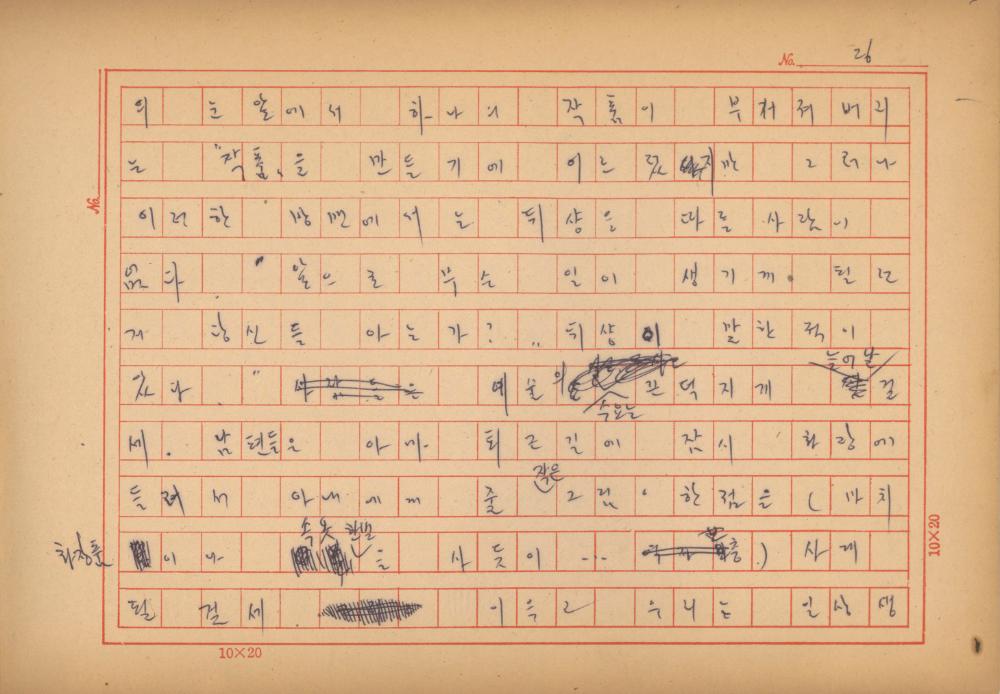 No. 26
의 눈앞에서 하나의 작품이 부쳐져 버리
는 "작품"을 만들기에 이르렀지만 그러나
이러한 방면에서는 뒤샹을 따를 사람이
없다 " 앞으로 무슨 일이 생기게 될른
지 당신들 아는가? „ 뒤샹이 말한 적이
있다. " 예술의 수요는 끈덕지게 늘어날 걸
세. 남편들은 아마 퇴근길에 잠시 화랑에
들려서 아내에게 줄 작은 그림 한점을 (마치
화장품이나 속옷 한벌을 사듯이 ... ) 사게
될 걸세. 이윽고 우리는 일상생
No.
10×20
10×20